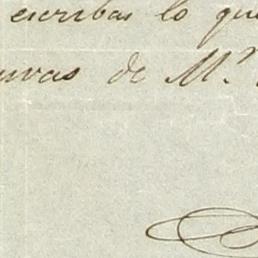 escribas lo que
de M.ª